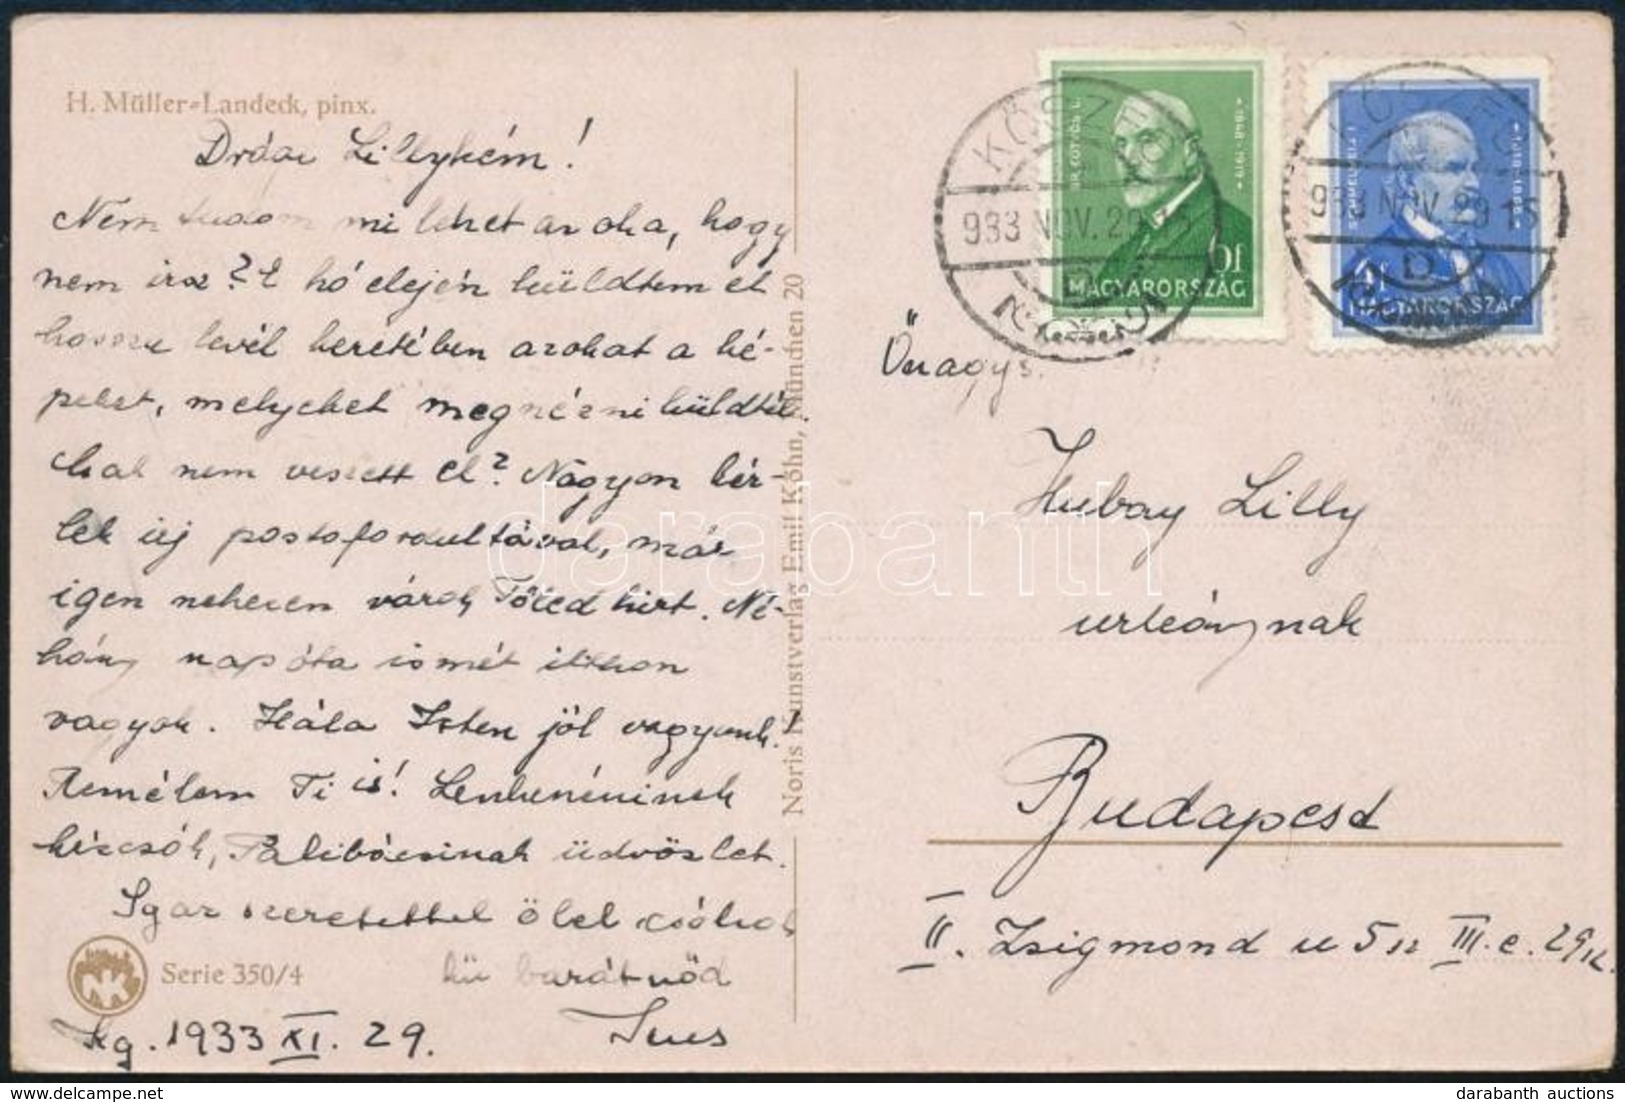 H. Müller-Landeck, pinx.
Drága Lillykém!
Nem tudom mi lehet az oka, hogy
nem írsz? E hó elején küldtem el
hosszu levél keretében azokat a ké-
peket, melyeket megnézni küldtél.
Csak nem veszett el? Nagyon kér-
lek írj postafordultával, már
igen nehezen várok Tőled hírt. Né-
hány napóta ismét itthon
vagyok. Hála Isten jól vagyunk!
Remélem Ti is! Lenkenéninek
kézcsók, Palibácsinak üdvözlet.
Igaz szeretettel ölel csókol
hü barátnőd
Kg. 1933 XI. 29.
Serie 350/4
Noris Kunstverlag Emil Köhn, München 20
KŐSZEG
933 NOV. 29 15
D
BR. EÖTVÖS L.
1848-1919
6f
MAGYARORSZÁG
KŐSZEG
933 NOV. 29 15
D
SEMMELWEIS I.
1818-1865
MAGYARORSZÁG
Őnagys.
Hubay Lilly
urleánynak
Budapest
II. Zsigmond u 5 sz III. e. 29
darabanth
darabanth auctions